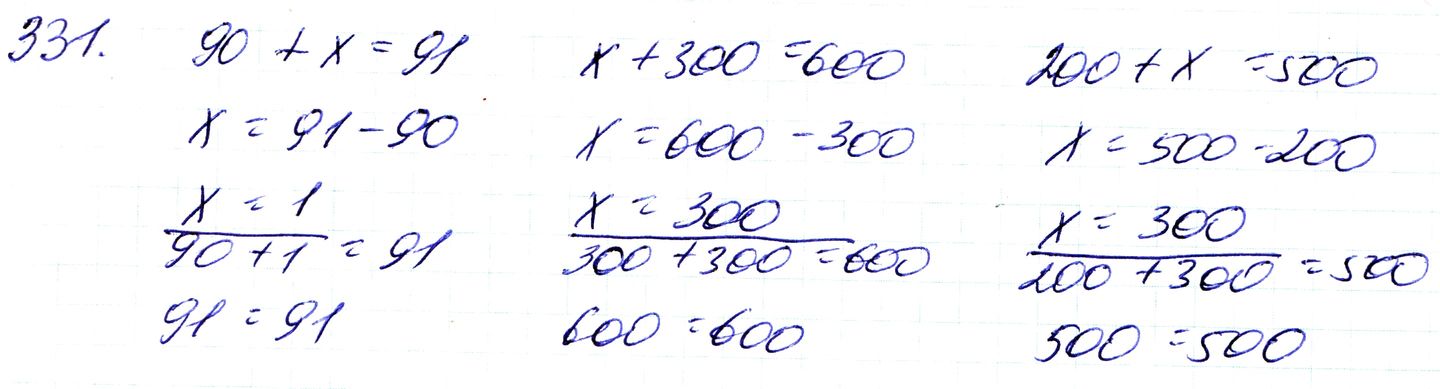 331. 90 + x = 91 x + 300 = 600 200 + x = 500
x = 91 - 90 x = 600 - 300 x = 500 - 200
x = 1 x = 300 x = 300
90 + 1 = 91 300 + 300 = 600 200 + 300 = 500
91 = 91 600 = 600 500 = 500